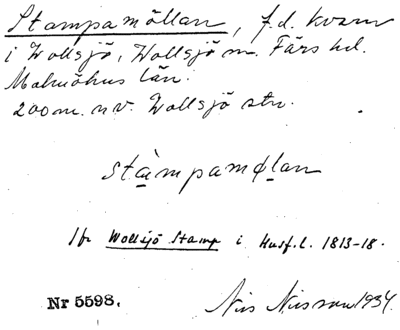 Stampamöllan, f.d. kvarn
i Wollsjö, Wollsjö sn. Färs hd.
Malmöhus län.
200 m. n.v. Wollsjö stn.
stàmpamølan
Jfr Wollsjö Stamp i Husf.l. 1813-18.
Nr 5598. Nils Nilsson 1934.